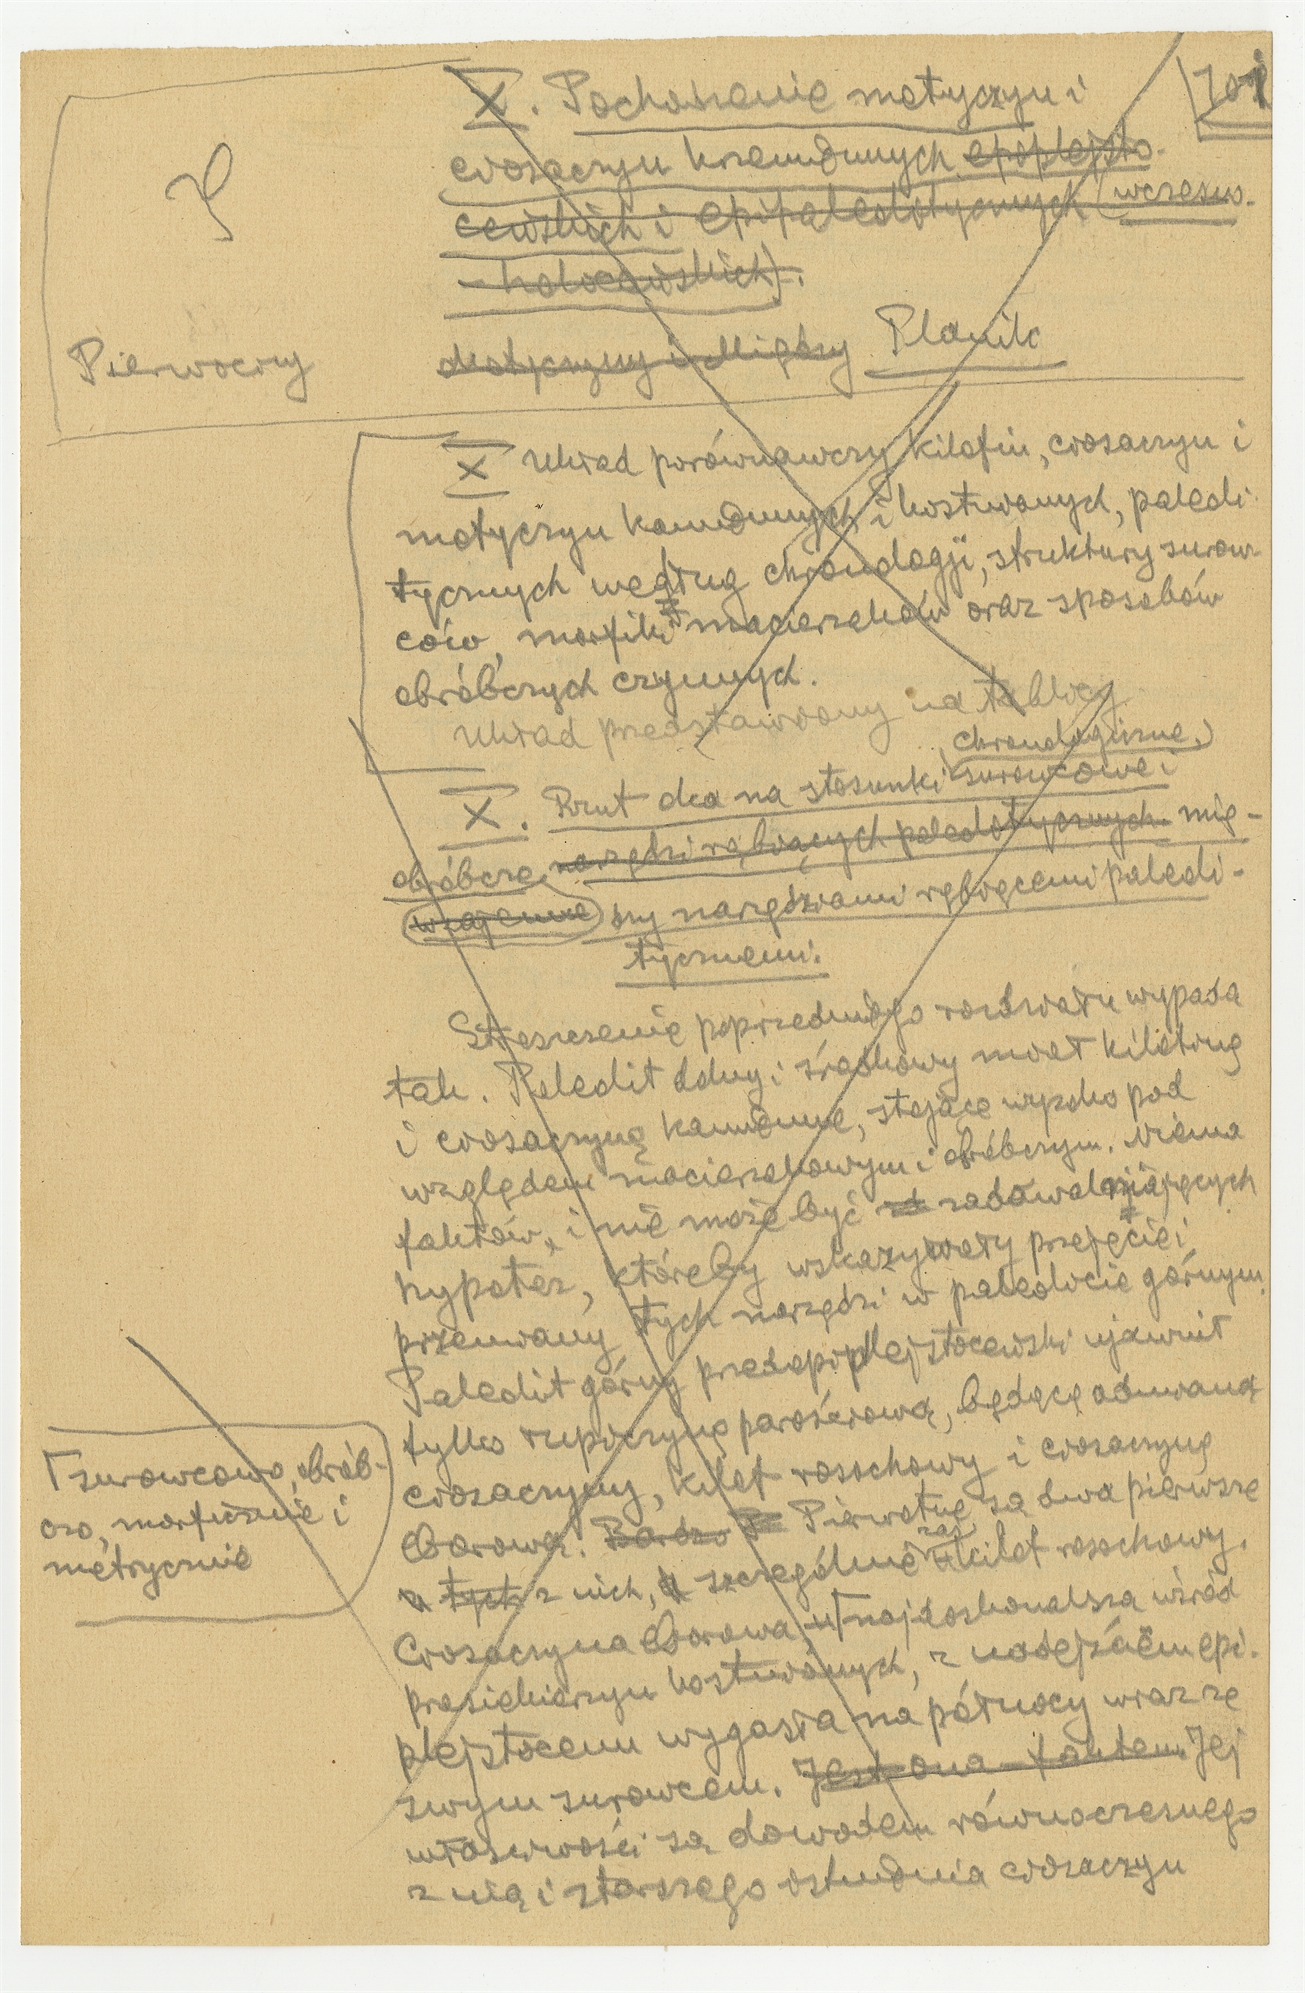 X. Pochodzenie motyczyn i
ciosaczyn krzemiennych epiplejsto-
ceńskich i epipaleolitycznych (wczesno-
-holoceńskich).
Pierwocny
Motyczyny i Między Planik
X Układ porównawczy kilofin, ciosaczyn i
motyczyn kamiennych i kostnianych, paleoli-
tycznych według chronologji, struktury surow-
ców, morfiki macierzaków oraz sposobów
obróbczych czynnych.
Układ przedstawiony na tablicy
chronologiczne,
X. Rzut oka na stosunki surowcowe i
obróbcze narzędzi rąbiących paleolitycznych mię-
wzajemne dzy narzędziami rębiącemi paleoli-
tycznemi.
Streszczenie poprzedniego rozdziału wypada
tak. Paleolit dolny i środkowy miał kilofinę
i ciosaczynę kamienne, stojące wysoko pod
względem macierzakowym i obróbczym. Niema
faktów, i nie może być zadawalniających
hypotez, któreby wskazywały przejęcie i
przemiany tych narzędzi w paleolicie górnym.
Paleolit górny przedepiplejstoceński ujawnił
tylko tłupiczynę parostrową, będącą odmianą
ciosaczyny, kilof rosochowy i ciosaczynę
oborową. Bardzo Pierwotne są dwa pierwsze
z nich, szczególnie zaś kilof rosochowy.
Ciosaczyna oborowa, najdoskonalsza wśród
⎡surowcowo, obrób-
czo, morficznie i
metrycznie
prasiekierzyn kostnianych, z nadejściem epi-
plejstocenu wygasła na północy wraz ze
swym surowcem. Jest ona faktem. Jej
właściwości są dowodem równoczesnego
z nią i starszego istnienia ciosaczyn